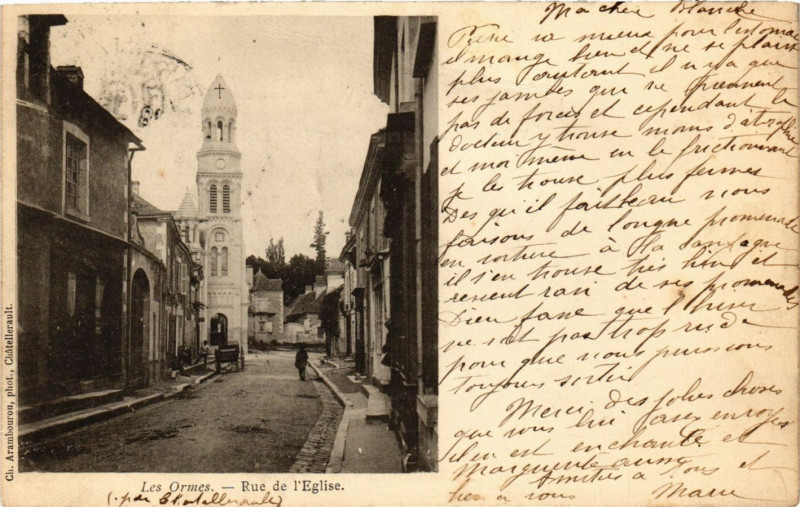 Ma chère Blanche
Pierre va mieux pour l'estomac
il mange bien et ne se plaint
plus autant il n'y a que
ses jambes qui ne prennent
pas de forces et cependant le
docteur y trouve moins d'atrophie
et moi même en le frictionnant
je les trouve plus fermes
Dès qu'il fait beau nous
faisons de longue promenade
en voiture à la campagne
il s'en trouve très bien et
revient ravi de ses promenades
Dieu fasse que l'hiver
ne soit pas trop rude
pour que nous puissions
toujours sortir
Merci des jolies choses
que vous lui avez envoyées
il en est enchanté et
Marguerite aussi
Amitiés à tous et
bien à vous Marie
Ch. Arambourou, phot., Châtellerault.
Les Ormes. — Rue de l'Eglise.
(par Chatellerault)